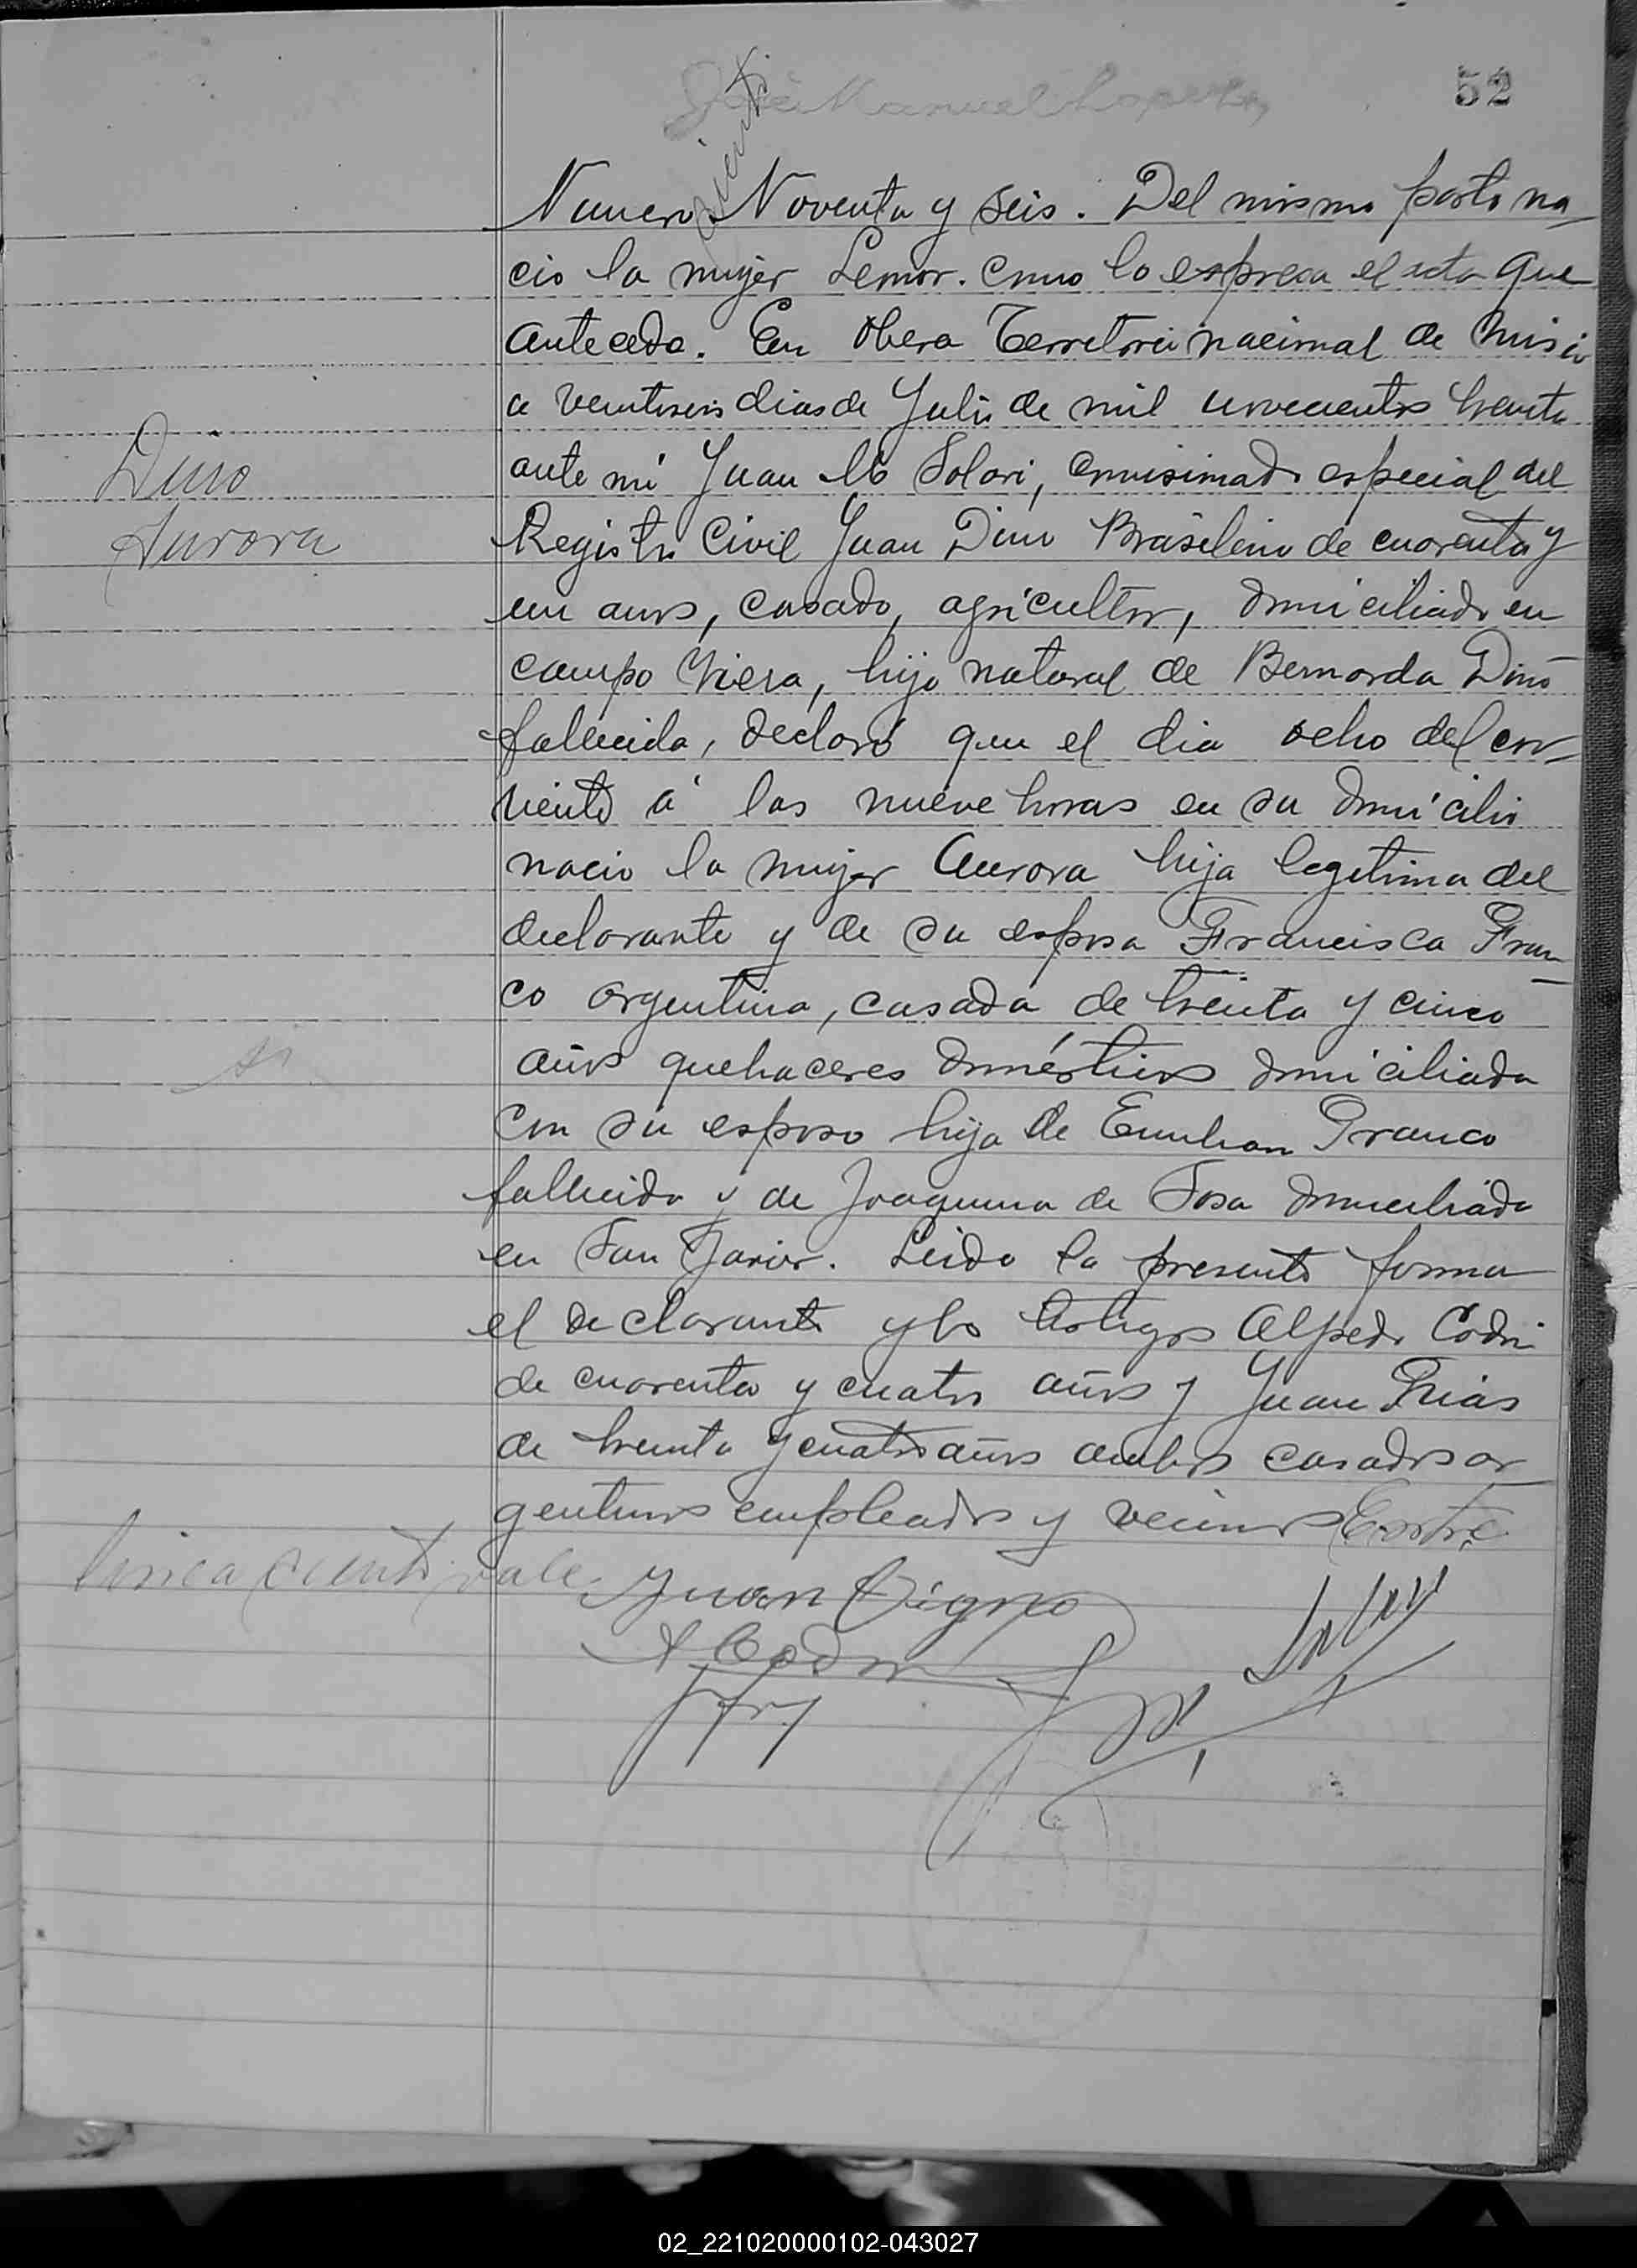 52
José Manuel Lopez
ciento
Numero Noventa y seis. Del mismo parto na
cio la mujer Lenor. como lo espresa el acta que
antecede. En Obera Territorio nacional de Misio
a veintiseis dias de Julio de mil novecientos treinta
ante mi Juan M Solari, comisionado especial del
Registro Civil Juan Dino Brasileño de cuarenta y
un años, casado, agricultor, domiciliado en
campo Viera, hijo natural de Bernarda Dino
fallecida, declaró que el dia ocho del cor-
riente á las nueve horas en su domicilio
nacio la mujer Aurora hija legitima del
declarante y de su esposa Francisca Fran-
co argentina, casada de treinta y cinco
años quehaceres domésticos domiciliada
con su esposo hija de Emilian Franco
fallecido y de Joaquina de Sosa domiciliada
en San Javier. Leida la presente forma
el declarante y lo testigos Alfredo Codri
de cuarenta y cuatro años y Juan Frias
de treinta y cuatro años ambos casados ar
gentinos empleados y vecinos Entre
linea ciento vale.
Dino
Aurora
Juan Digno
A Codri
Solari
02_221020000102-043027